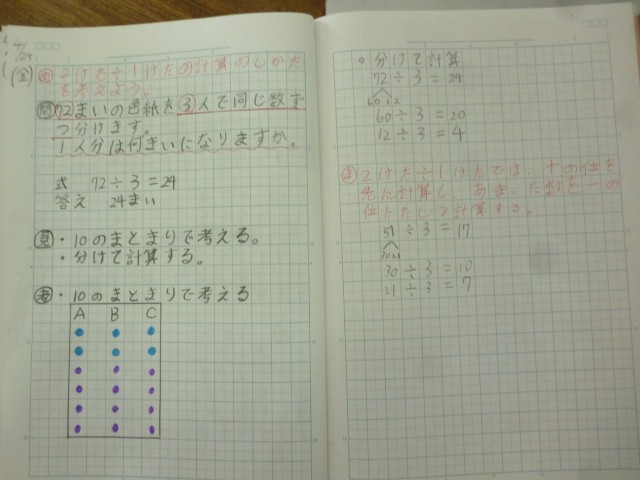 4/24
(金)
め 2けた÷1けたの計算のしかた
を考えよう。
問 72まいの色紙を3人で同じ数ず
つ分けます。
1人分は何まいになりますか。
式 72÷3=24
答え 24まい
見・10のまとまりで考える。
・分けて計算する。
考・10のまとまりで考える
A B C
○分けて計算
72÷3=24
60 12
60÷3=20
12÷3=4
ま 2けた÷1けたでは、十の位を
先に計算し、あまった数を一の
位にたして計算する。
51÷3=17
30 21
30÷3=10
21÷3=7